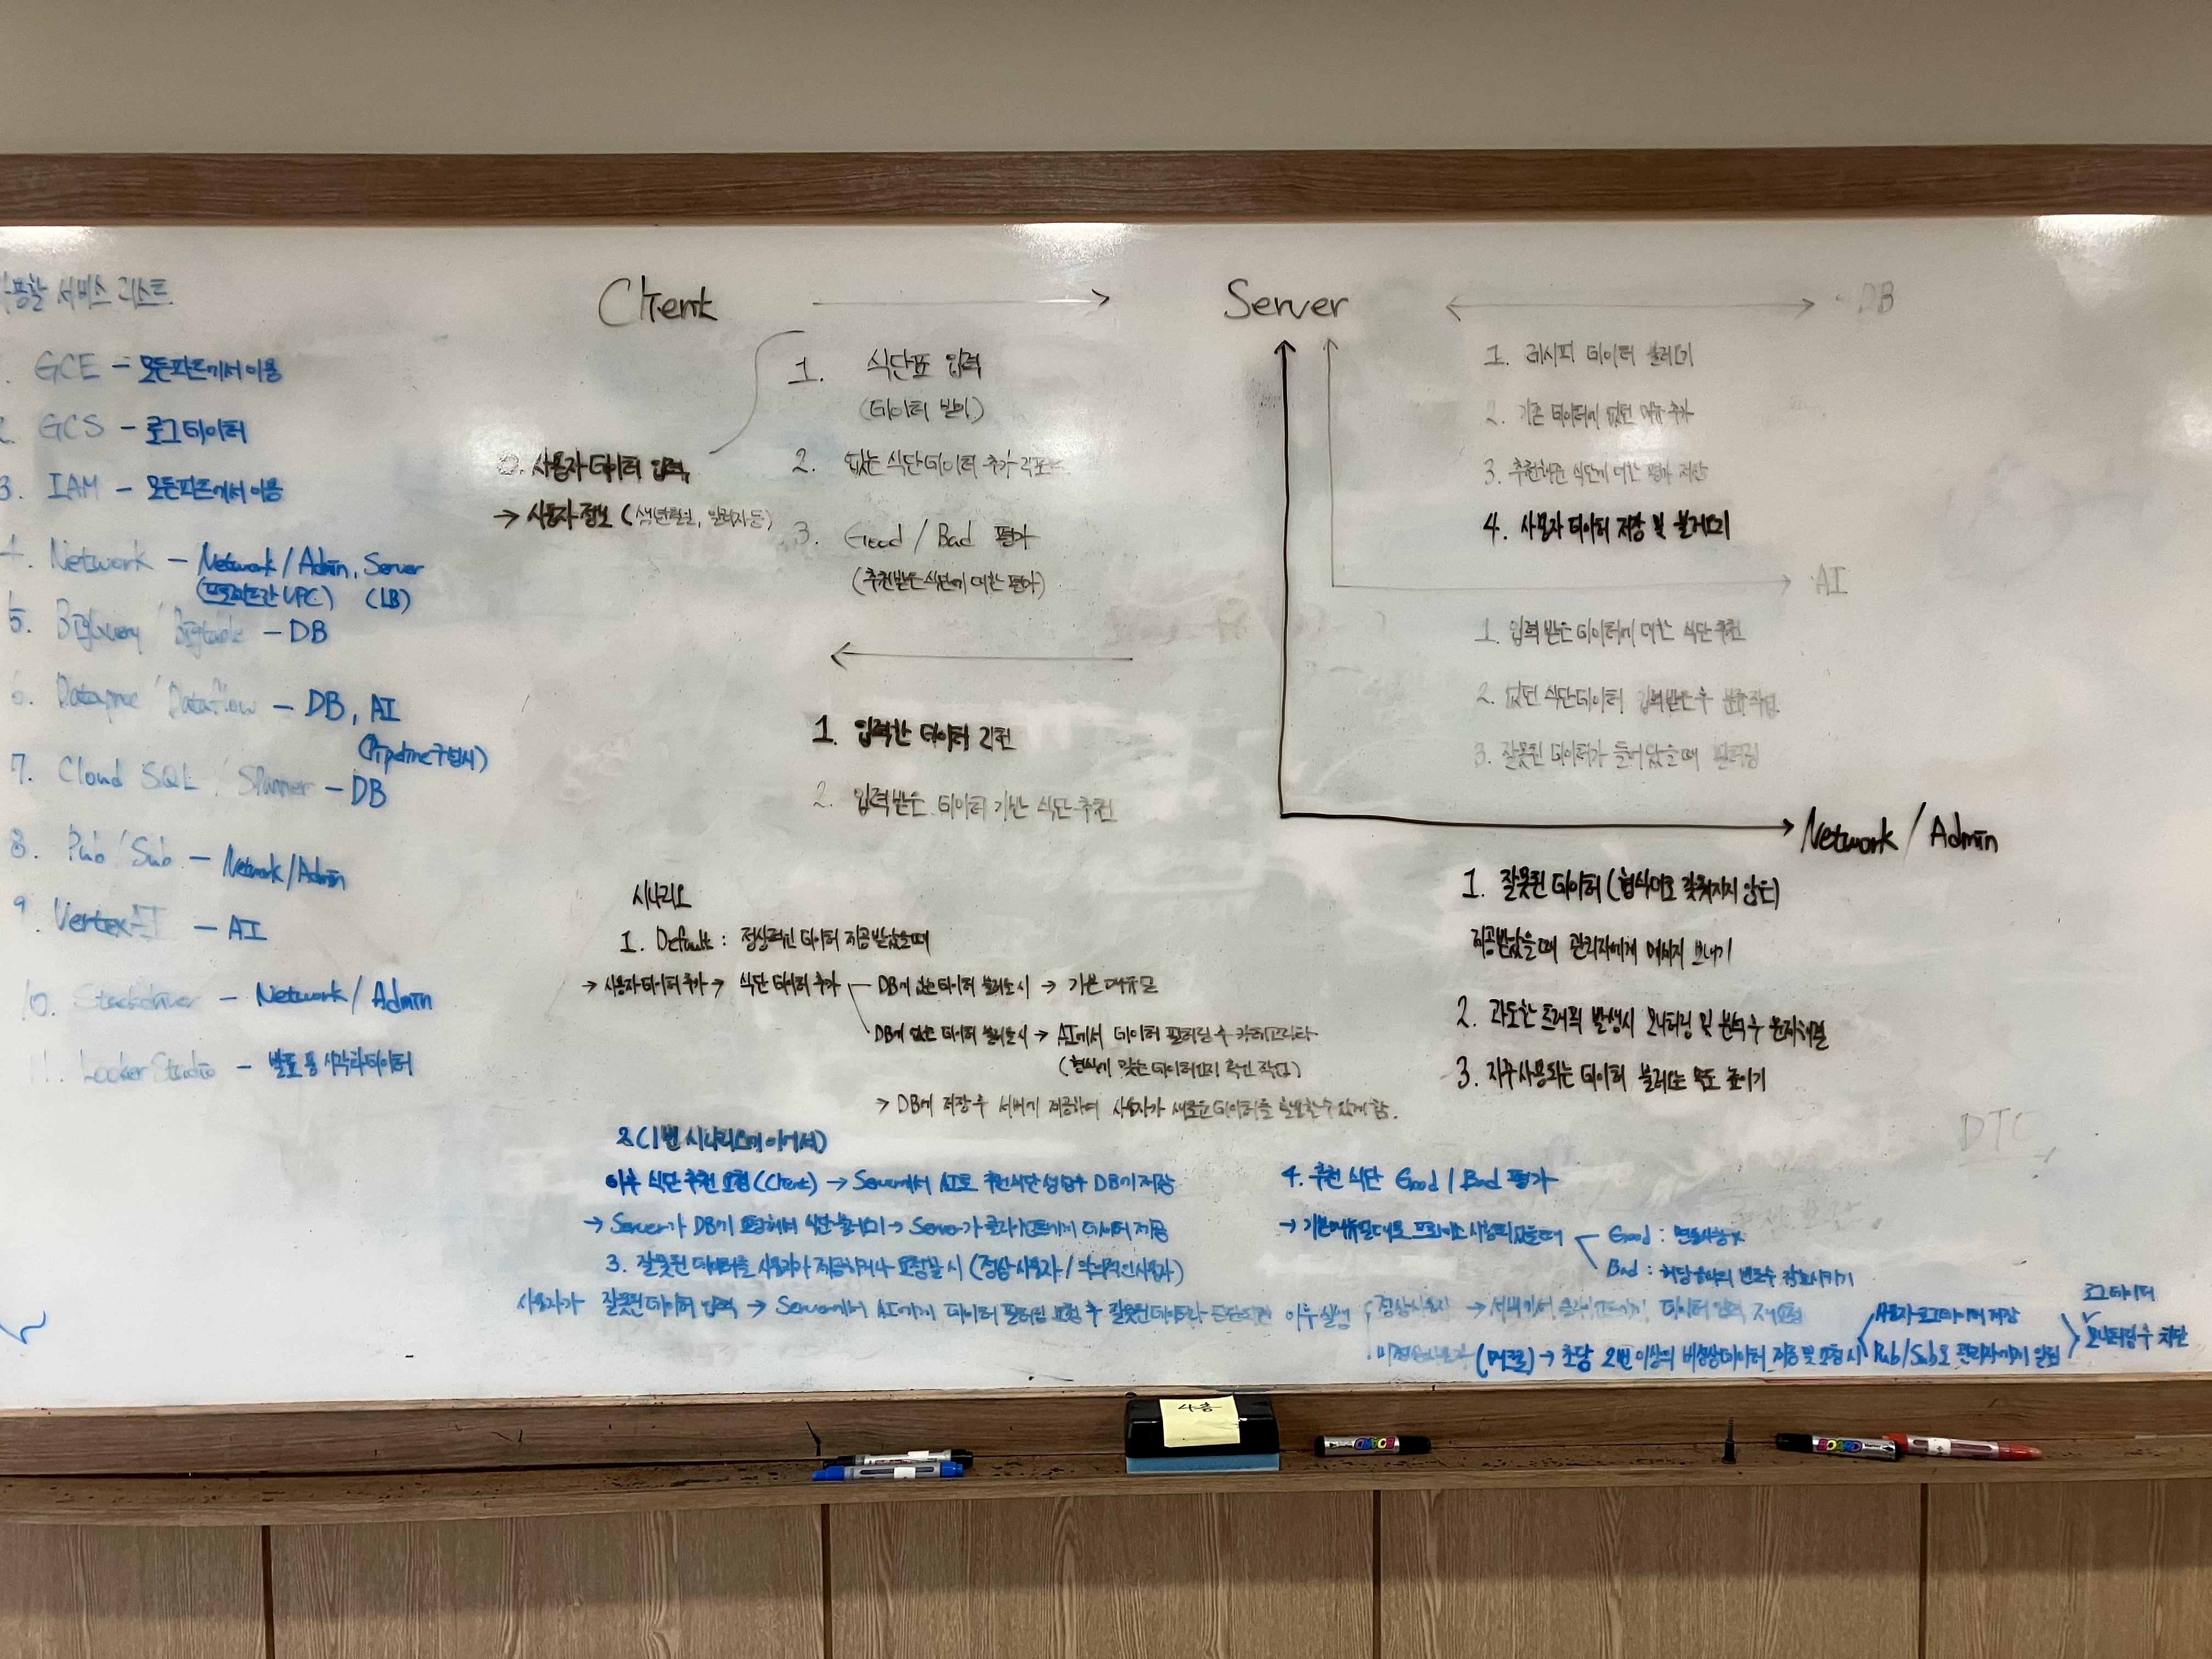 사용할 서비스 리스트
1. GCE - 모든파트에서 이용
2. GCS - 로그데이터
3. IAM - 모든파트에서 이용
4. Network - Network/Admin, Server
(프로젝트간 VPC) (LB)
5. BigQuery / Bigtable - DB
6. Dataproc / Dataflow - DB, AI
(Pipeline구성시)
7. Cloud SQL / Spanner - DB
8. Pub/Sub - Network/Admin
9. VertexAI - AI
10. Stackdriver - Network/Admin
11. Looker Studio - 발표용 시각화데이터
Client
Server
DB
0. 사용자 데이터 입력
→ 사용자 정보 (생년월일, 알러지 등)
1. 식단표 입력
(데이터 받기)
2. 없는 식단데이터 추가 리포트
3. Good / Bad 평가
(추천받은 식단에 대한 평가)
1. 입력한 데이터 리턴
2. 입력받은 데이터 기반 식단 추천
1. 레시피 데이터 불러오기
2. 기존 데이터에 없던 메뉴 추가
3. 추천해준 식단에 대한 평가 저장
4. 사용자 데이터 저장 및 불러오기
AI
1. 입력 받은 데이터에 대한 식단 추천
2. 없던 식단데이터 입력받은 후 분류작업
3. 잘못된 데이터가 들어왔을때 필터링
Network / Admin
1. 잘못된 데이터 (형식대로 갖춰지지 않은)
제공받았을때 관리자에게 메세지 보내기
2. 과도한 트래픽 발생시 모니터링 및 분석후 문제해결
3. 자주사용되는 데이터 불러오는 속도 높이기
DTC
시나리오
1. Default : 정상적인 데이터 제공받았을때
→ 사용자데이터 추가 → 식단 데이터 추가
DB에 있는 데이터 불러오기시 → 기본 메뉴얼
DB에 없는 데이터 불러오기시 → AI에서 데이터 필터링 후
(형식에 맞는 데이터인지 확인 작업)
→ DB에 저장후 서버에 제공하여 사용자가 새로운데이터를 활용할수있게 함.
2 (1번 시나리오에 이어서)
이후 식단 추천 요청(Client) → Server에서 AI로 추천식단 생성후 DB에 저장
→ Server가 DB에 요청해서 식단 불러오기 → Server가 클라이언트에게 데이터 제공
3. 잘못된 데이터를 사용자가 제공하거나 요청할 시 (정상사용자 / 악의적인사용자)
사용자가 잘못된데이터 입력 → Server에서 AI에게 데이터 필터링 요청 후 잘못된데이터라 판단되면 이후실행
정상사용자 → 서버에서 클라이언트에게 데이터 입력 재요청
비정상사용자 (매크로) → 초당 2번 이상의 비정상데이터 제공 및 요청 시
사용자로그데이터 저장
Pub/Sub로 관리자에게 알림
로그데이터
모니터링 후 차단
4. 추천 식단 Good / Bad 평가
→ 기본메뉴얼대로 프로세스 시행되었을때
Good :
Bad : 해당음식의 빈도수 감소시키기
4층
BOARD
BOARD